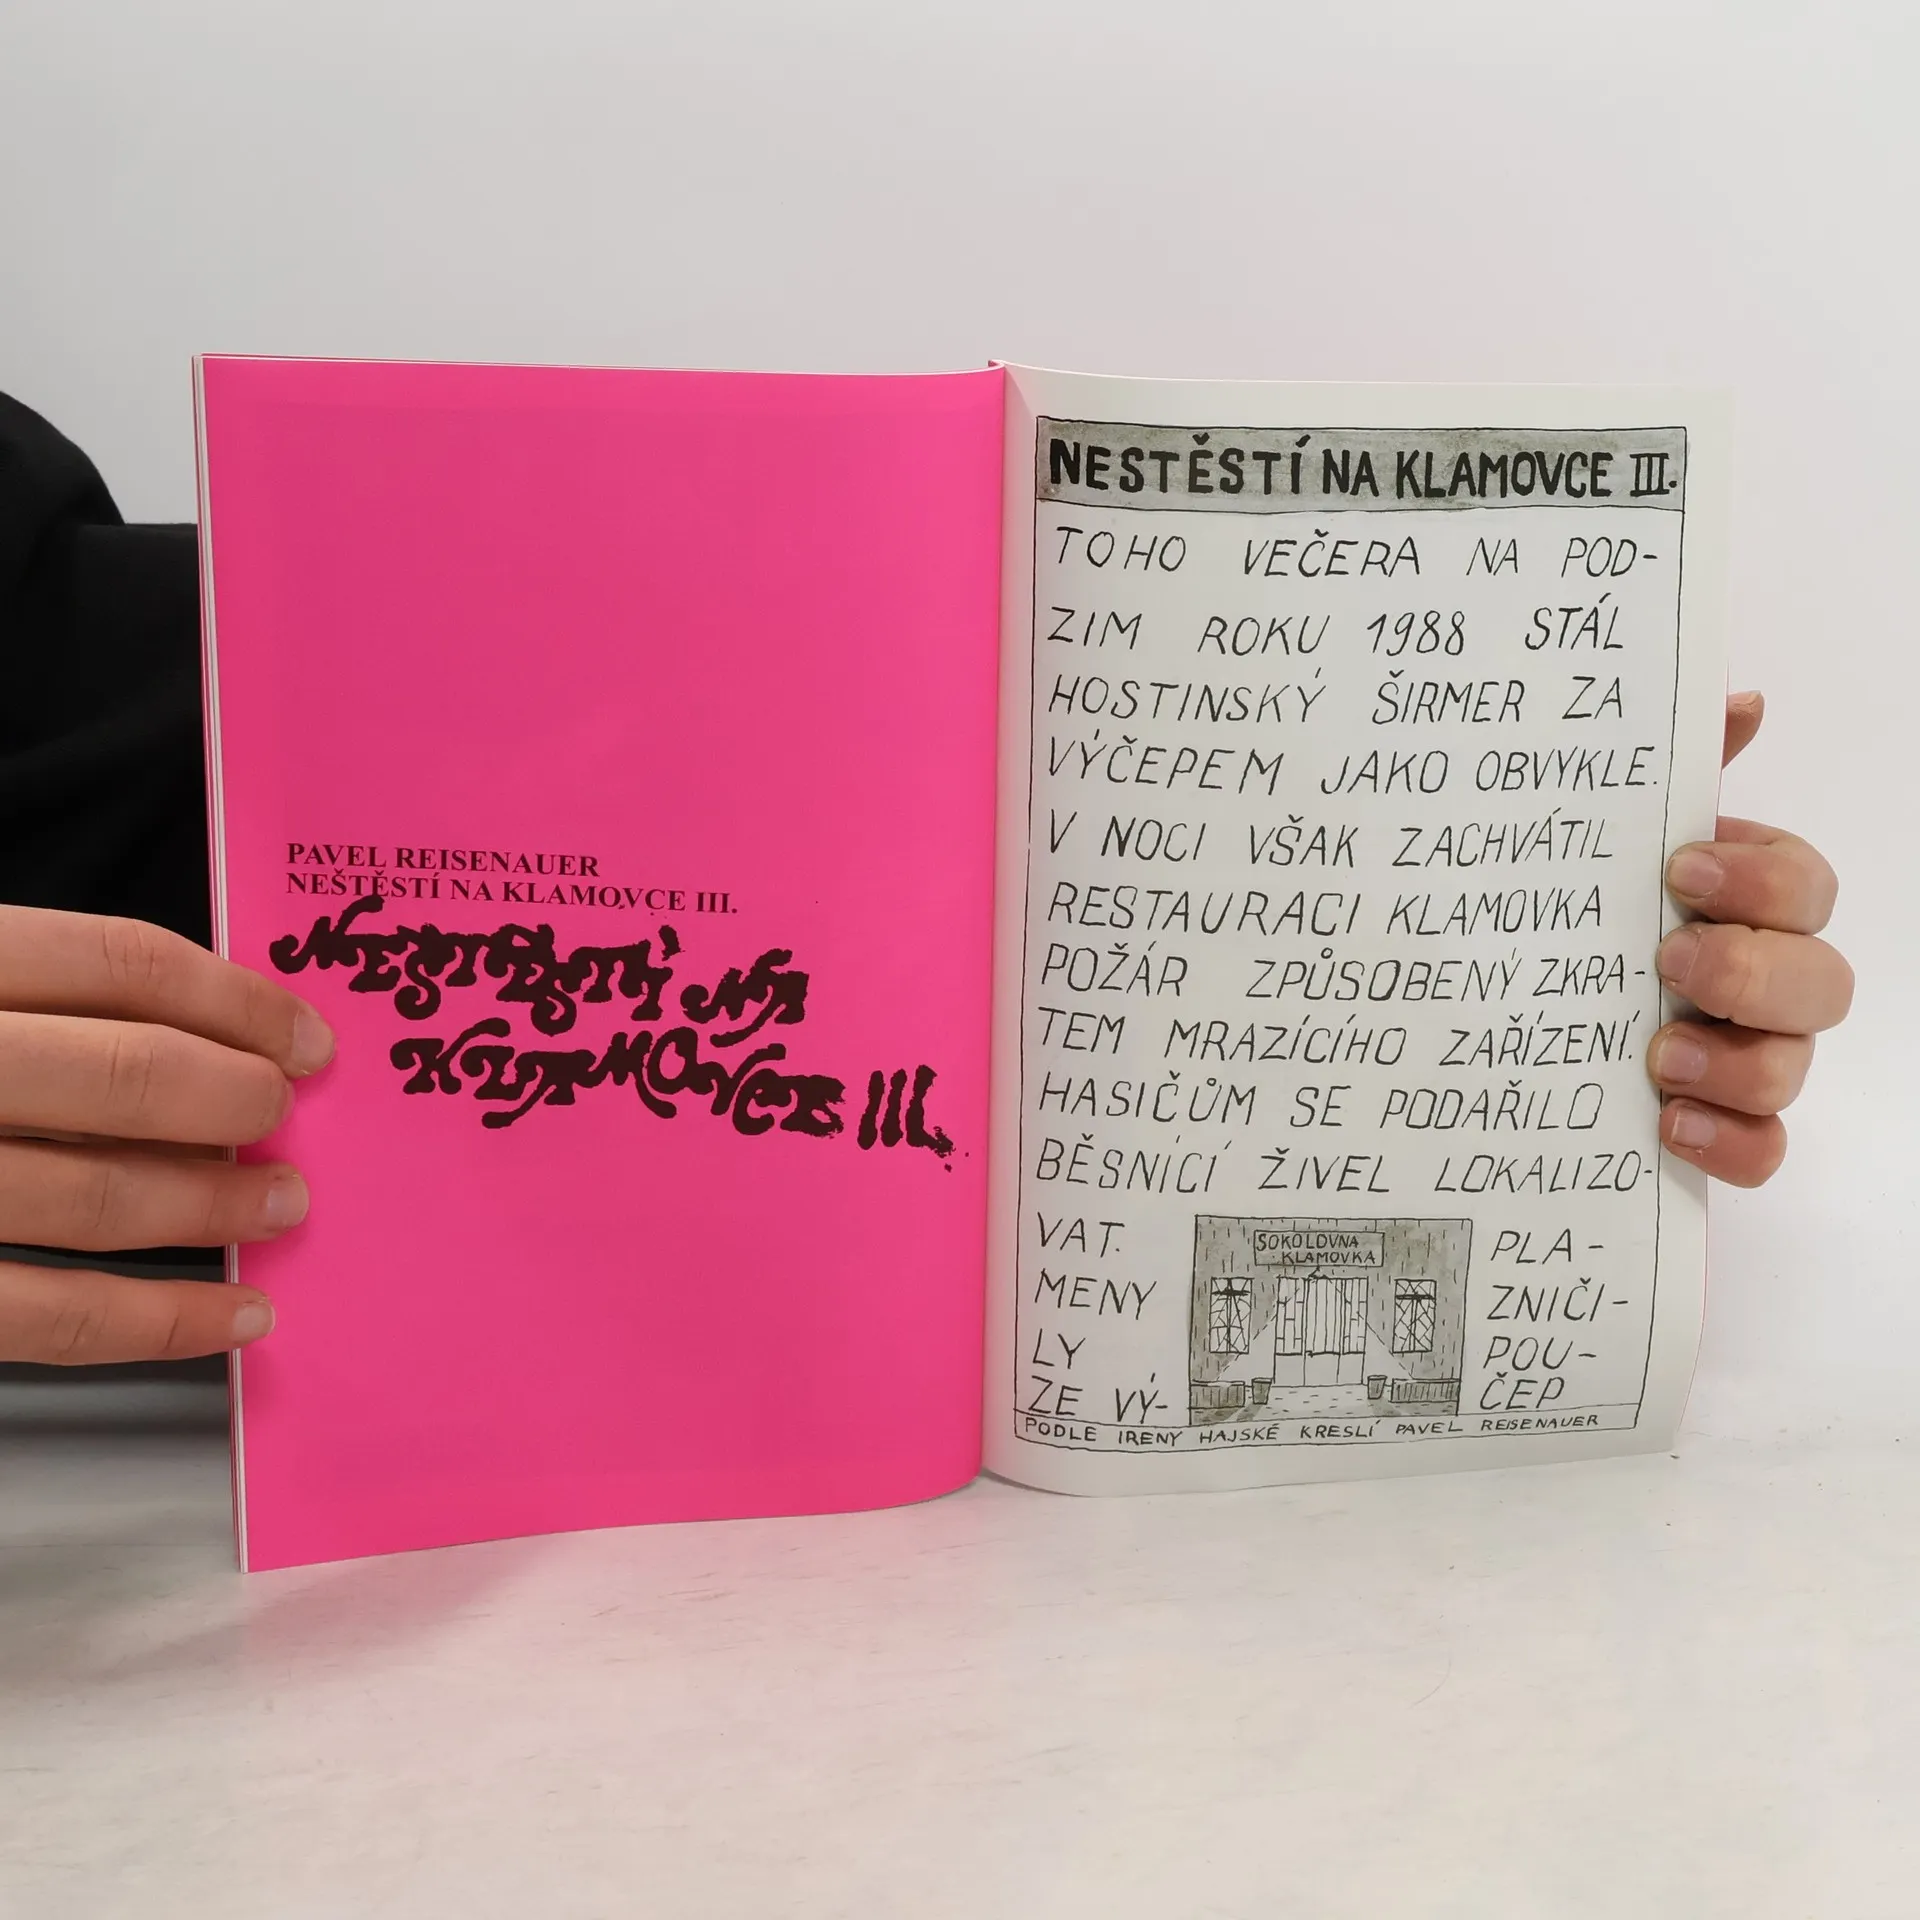 PAVEL REISENAUER
NEŠTĚSTÍ NA KLAMOVCE III.
NESTĚSTÍ NA
KLAMOVCE III.
NESTĚSTÍ NA KLAMOVCE III.
TOHO VEČERA NA POD-
ZIM ROKU 1988 STÁL
HOSTINSKÝ ŠIRMER ZA
VÝČEPEM JAKO OBVYKLE.
V NOCI VŠAK ZACHVÁTIL
RESTAURACI KLAMOVKA
POŽÁR ZPŮSOBENÝ ZKRA-
TEM MRAZÍCÍHO ZAŘÍZENÍ.
HASIČŮM SE PODAŘILO
BĚSNÍCÍ ŽIVEL LOKALIZO-
VAT. PLA-
MENY ZNIČI-
LY POU-
ZE VÝ- ČEP
SOKOLOVNA
KLAMOVKA
PODLE IRENY HAJSKÉ KRESLÍ PAVEL REISENAUER